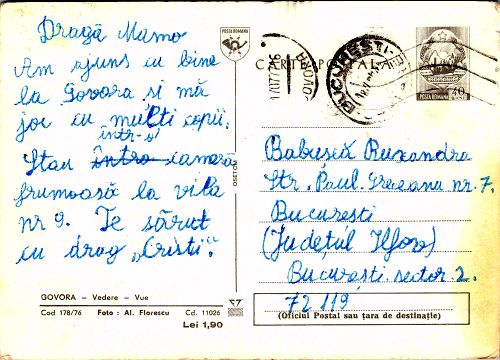 Dragă Mamo
Am ajuns cu bine
la Govora și mă
joc cu mulți copii.
într-o
Stau intro camera
frumoasă la vila
nr 9. Te sărut
cu drag „Cristi”.
GOVORA – Vedere – Vue
Cod 178/76 Foto : Al. Florescu Cd. 11026
Lei 1,90
OSETCM
POSTA ROMANA
CARTE POSTALA
BUCURESTI
POSTA ROMANA 40
Babușcă Ruxandra
Str. Paul Greceanu nr. 7.
București
(Județul Ilfov)
București sector 2.
72119
(Oficiul Postal sau țara de destinație)